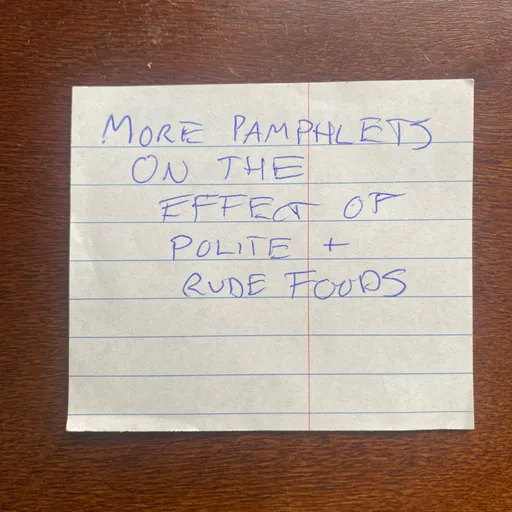 MORE PAMPHLETS
ON THE
EFFECT OF
POLITE +
RUDE FOODS